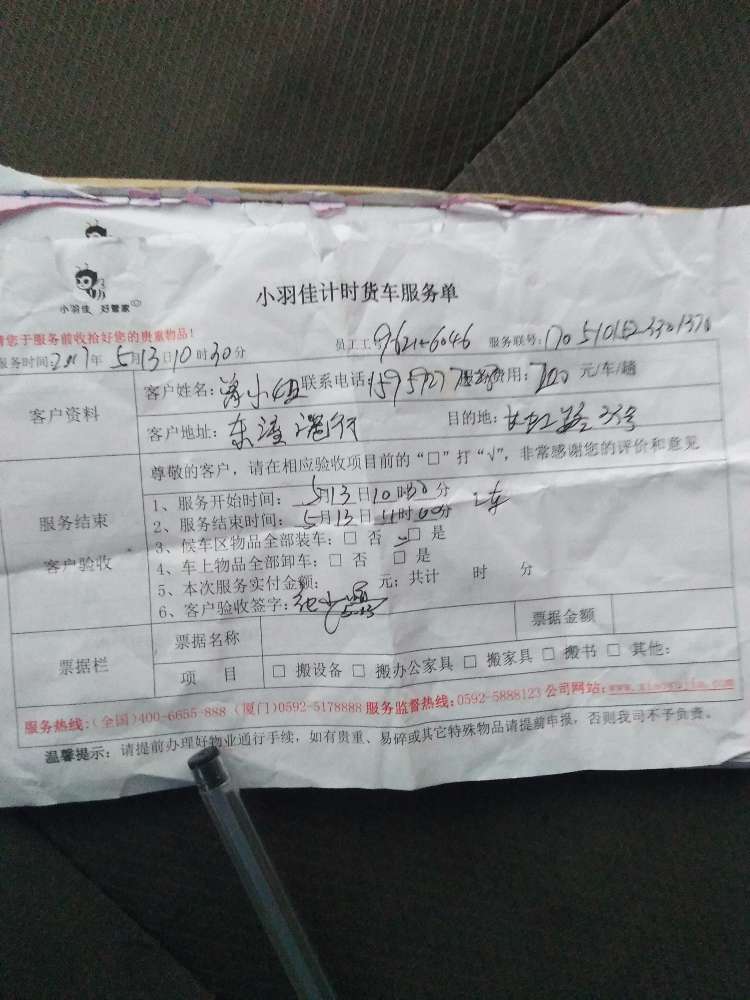 小羽佳 好管家
小羽佳计时货车服务单
请您于服务前收拾好您的贵重物品!
员工工 9621-6046 服务联号:
服务时间:2017年5月13日10时30分
客户资料
客户姓名: 小姐 联系电话: 费用: 元/车/趟
客户地址: 东渡 目的地:
服务结束
客户验收
尊敬的客户,请在相应验收项目前的“□”打“√”,非常感谢您的评价和意见
1、服务开始时间: 5月13日10时30分
2、服务结束时间: 5月13日11时00分
3、候车区物品全部装车:□ 否 □ 是
4、车上物品全部卸车:□ 否 □ 是
5、本次服务实付金额: 元;共计 时 分
6、客户验收签字:
票据栏
票据名称 票据金额
项 目 □ 搬设备 □ 搬办公家具 □ 搬家具 □ 搬书 □ 其他:
服务热线:(全国)400-6655-888 (厦门)0592-5178888 服务监督热线:0592-5888123 公司网站:
温馨提示:请提前办理好物业通行手续,如有贵重、易碎或其它特殊物品请提前申报,否则我司不予负责。